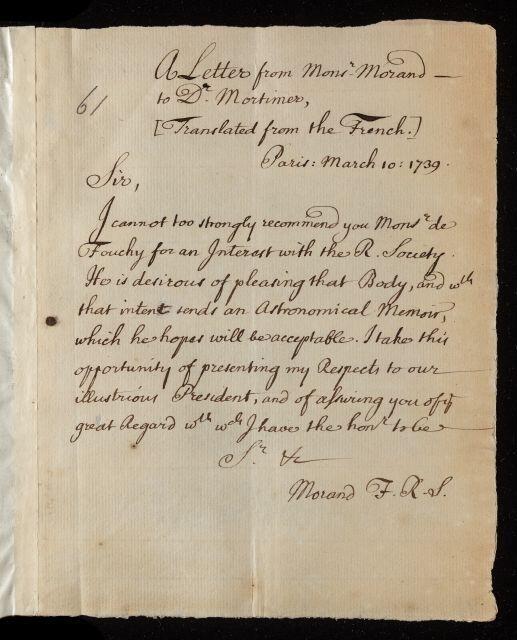 A Letter from Monsr. Morand —
61
to Dr. Mortimer,
[Translated from the French.]
Paris: March 10: 1739.
Sir,
I cannot too strongly recommend you Monsr. de
Fouchy for an Interest with the R. Society.
He is desirous of pleasing that Body, and wth
that intent sends an Astronomical Memoir,
which he hopes will be acceptable. I take this
opportunity of presenting my Respects to our
illustrious President, and of assuring you of ye
great Regard wth wch I have the honr. to be
Sr. &c
Morand F. R. S.